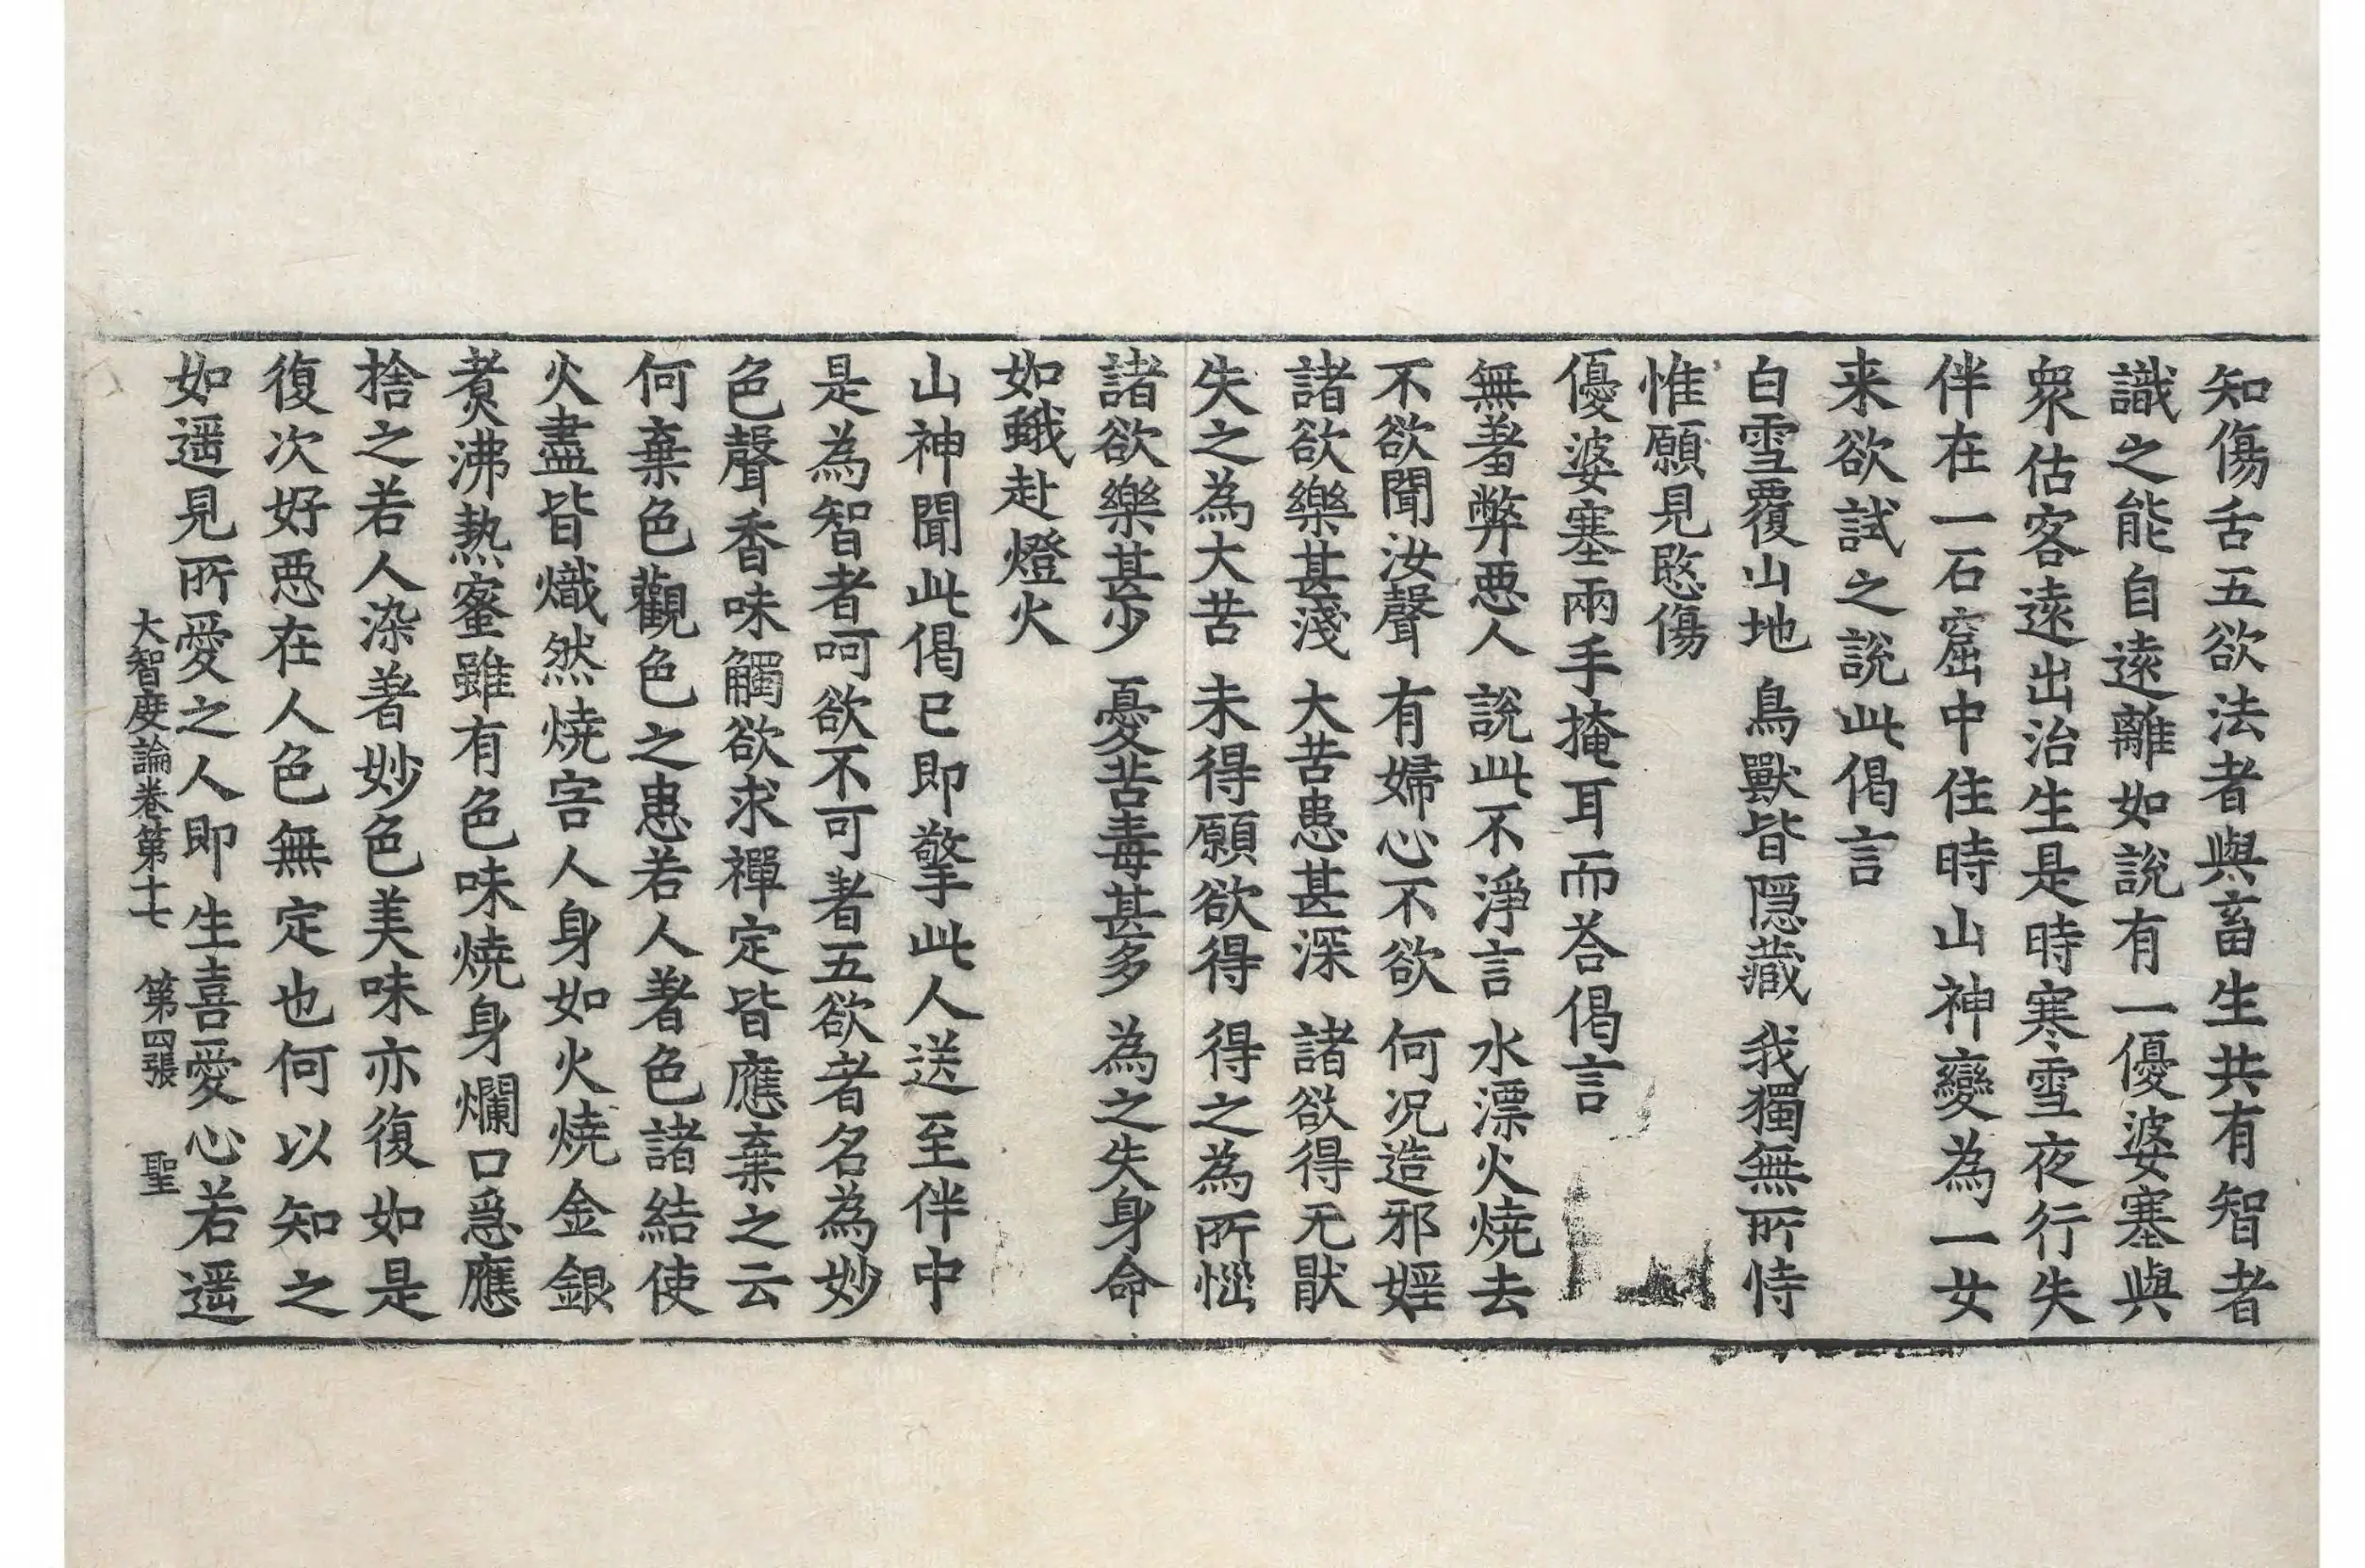 知傷舌五欲法者與畜生共有智者
識之能自遠離如說有一優婆塞與
衆估客遠出治生是時寒雪夜行失
伴在一石窟中住時山神變為一女
来欲試之說此偈言
白雪覆山地 鳥獸皆隠藏 我獨無所恃
惟願見愍傷
優婆塞兩手掩耳而荅偈言
無羞弊惡人 說此不淨言 水漂火燒去
不欲聞汝聲 有婦心不欲 何況造邪婬
諸欲樂甚淺 大苦患甚深 諸欲得无猒
失之為大苦 未得願欲得 得之為所惱
諸欲樂甚少 憂苦毒甚多 為之失身命
如蛾赴燈火
山神聞此偈已即擎此人送至伴中
是為智者呵欲不可著五欲者名為妙
色聲香味觸欲求禪定皆應棄之云
何棄色觀色之患若人著色諸結使
火盡皆熾然燒害人身如火燒金銀
煮沸熱蜜雖有色味燒身爛口急應
捨之若人染著妙色美味亦復如是
復次好惡在人色無定也何以知之
如遥見所愛之人即生喜愛心若遥
大智度論卷第十七 第四張 聖